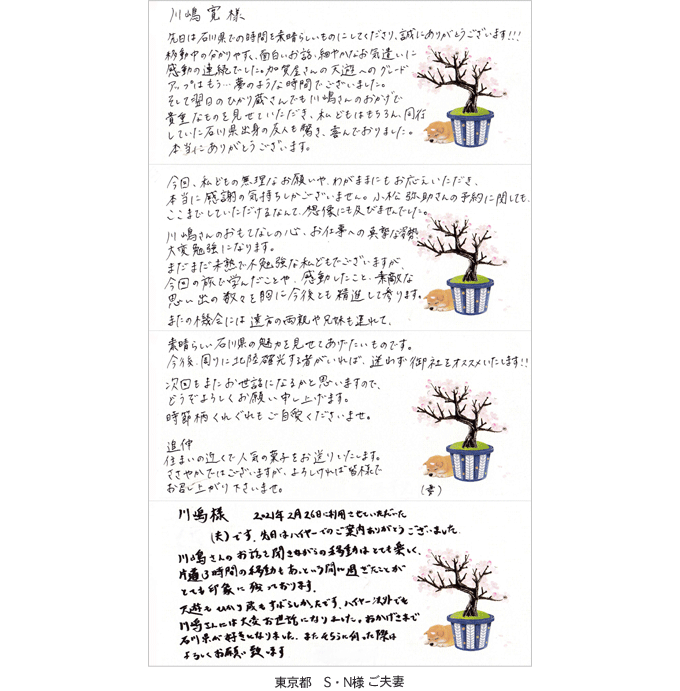 川嶋 寛 様
先日は石川県での時間を素晴らしいものにしてくださり、誠にありがとうございます!!!
移動中の分かりやすく、面白いお話、細やかなお気遣いに
感動の連続でした。加賀屋さんの天遊へのグレード
アップはもう…夢のような時間でございました。
そして翌日のひかり蔵さんでも川嶋さんのおかげで
貴重なものを見せていただき、私どもはもちろん、同行
していた石川県出身の友人も驚き、喜んでおりました。
本当にありがとうございます。
今回、私どもの無理なお願いや、わがままにもお応えいただき、
本当に感謝の気持ちしかございません。小松 弥助さんの予約に関しても、
ここまでしていただけるなんて、想像にも及びませんでした。
川嶋さんのおもてなしの心、お仕事への真摯な姿勢
大変勉強になります。
まだまだ未熟で不勉強な私どもでございますが、
今回の旅で学んだことや、感動したこと、素敵な
思い出の数々を胸に今後とも精進して参ります。
またの機会には遠方の両親や兄妹も連れて、
素晴らしい石川県の魅力を見せてあげたいものです。
今後、周りに北陸観光する者がいれば、迷わず御社をオススメいたします!!
次回もまたお世話になるかと思いますので、
どうぞよろしくお願い申し上げます。
時節柄くれぐれもご自愛くださいませ。
追伸
住まいの近くで人気の菓子をお送りいたします。
ささやかではございますが、よろしければ皆様で
お召し上がり下さいませ。
(妻)
川嶋様 2021年2月26日に利用させていただいた
(夫)です。先日はハイヤーでのご案内ありがとうございました。
川嶋さんのお話を聞きながらの移動はとても楽しく、
片道3時間の移動もあっという間に過ぎたことが
とても印象に残っております。
天遊もひかり蔵もすばらしかったです。ハイヤー以外でも
川嶋さんには大変お世話になりました。おかげさまで
石川県が好きとなりました。またそちらに伺った際は
よろしくお願い致します
東京都 S・N様 ご夫妻